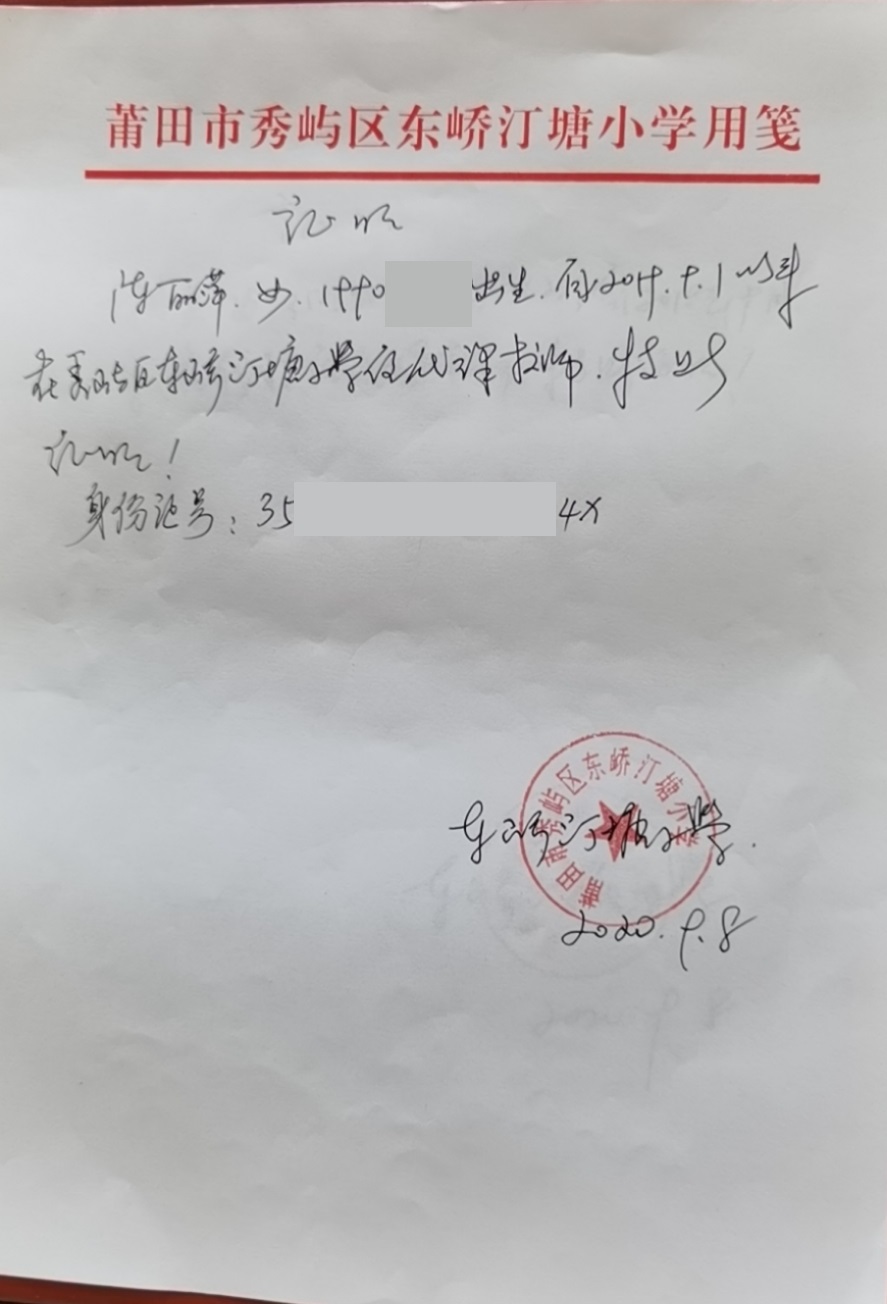 莆田市秀屿区东峤汀塘小学用笺
证明
陈丽萍.女.1990 出生.自2019.9.1以来
在秀屿区东峤汀塘小学任代课教师.特此
证明!
身份证号:35 4X
莆田市秀屿区东峤汀塘小学
东峤汀塘小学.
2020.9.8